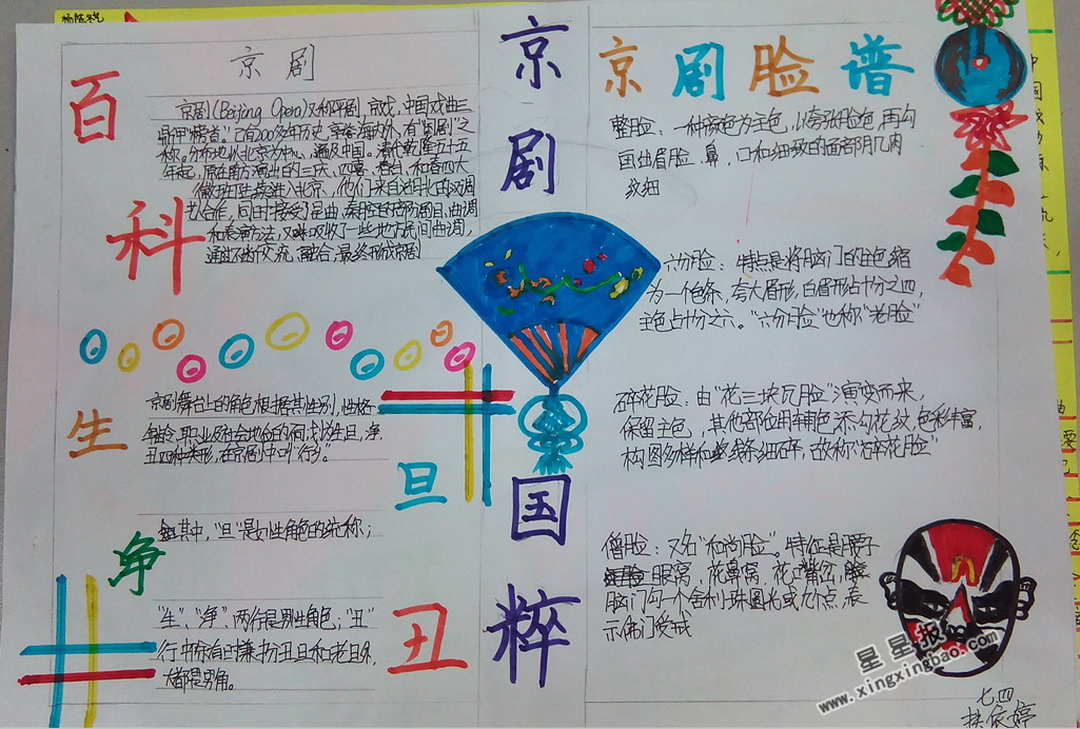 杨陈悦
百科
京剧
京剧(Beijing Opera)又称平剧,京戏,中国戏曲三
鼎甲"榜首"。已有200多年历史,享誉海内外,有"国剧"之
称。分布地以北京为中心,遍及中国。清代乾隆五十五
年起,原在南方演出的三庆、四喜、春台、和春四大
徽班陆续进入北京,他们来自湖北的汉调
艺人合作,同时接受了昆曲、秦腔的部分剧目、曲调
和表演方法,又吸收了一些地方民间曲调,
通过不断交流、融合,最终形成京剧
生
京剧舞台上的角色根据其性别,性格
年龄、职业及社会地位的不同,划分生、旦、净、
丑四种类形,在京剧中叫"行当"。
旦
其中,"旦"是女性角色的统称;
净
"生"、"净"、两行是男性角色;"丑"
行中除有时兼扮丑旦和老旦外,
大都是男角。
丑
京剧国粹
京剧脸谱
整脸:一种颜色为主色,以夸张脸色,再勾
国出眉脸、鼻,口和细致的面部肌肉
纹细
六分脸:特点是将脑门的主色缩
为一个色条,夸大眉形,白眉形占十分之四,
主色占十分之六。"六分脸"也称"老脸"
碎花脸:由"花三块瓦脸"演变而来,
保留主色,其他部位用辅色添勾花纹,色彩丰富,
构图多样和线条细碎,故称"碎花脸"
僧脸:又名"和尚脸"。特征是腰子
眼窝,花鼻窝、花嘴岔,
脑门勾一个舍利珠圆光或九个点,表
示佛门受戒
七四
依婷
星星报
www.xingxingbao.com